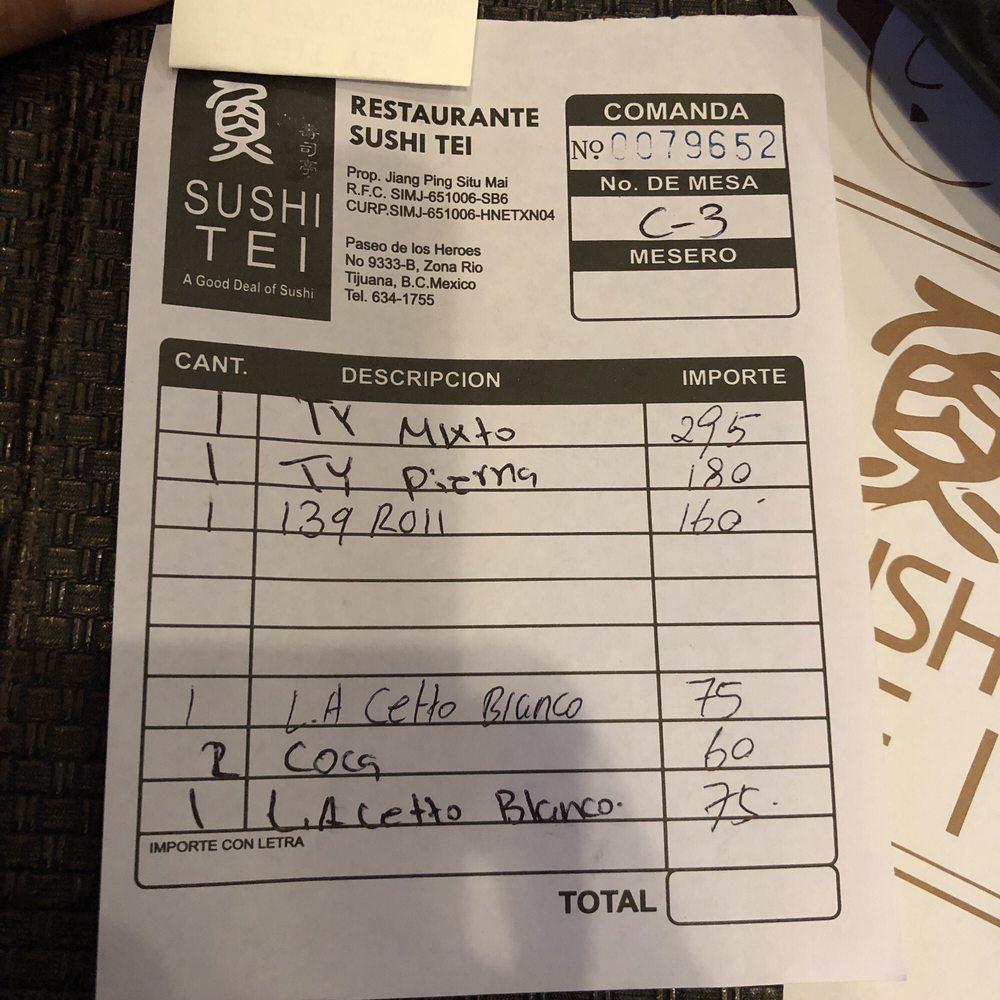 SUSHI
TEI
A Good Deal of Sushi
RESTAURANTE
SUSHI TEI
Prop. Jiang Ping Situ Mai
R.F.C. SIMJ-651006-SB6
CURP.SIMJ-651006-HNETXN04
Paseo de los Heroes
No 9333-B, Zona Rio
Tijuana, B.C.Mexico
Tel. 634-1755
COMANDA
Nº 0079652
No. DE MESA
C-3
MESERO
CANT. DESCRIPCION IMPORTE
1 TY Mixto 295
1 TY Pierna 180
1 139 Roll 160
1 L.A Cetto Blanco 75
2 Coca 60
1 L.A Cetto Blanco. 75.
IMPORTE CON LETRA
TOTAL